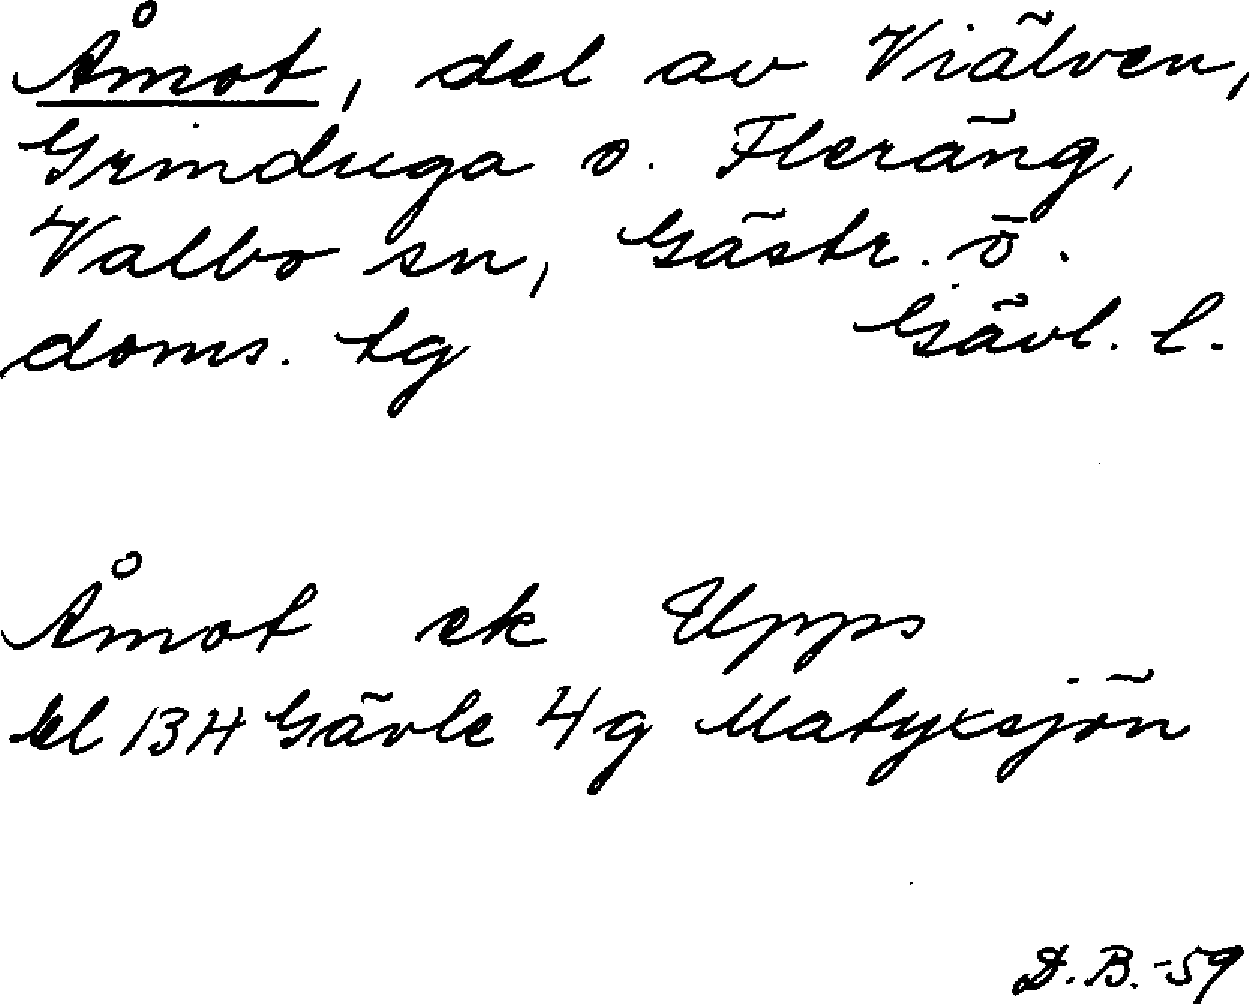 Åmot, del av Viälven,
Grinduga o. Fleräng,
Valbo sn, Gästr. ö.
doms. tg Gävl. l.
Åmot ek Upps
bl 13H Gävle 4g Matyxsjön
D.B.-59